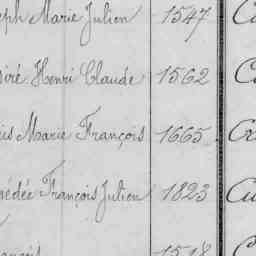 eph Marie Julien 1547
siré Henri Claude 1562
uis Marie François 1665
édée François Julien 1823
ançois